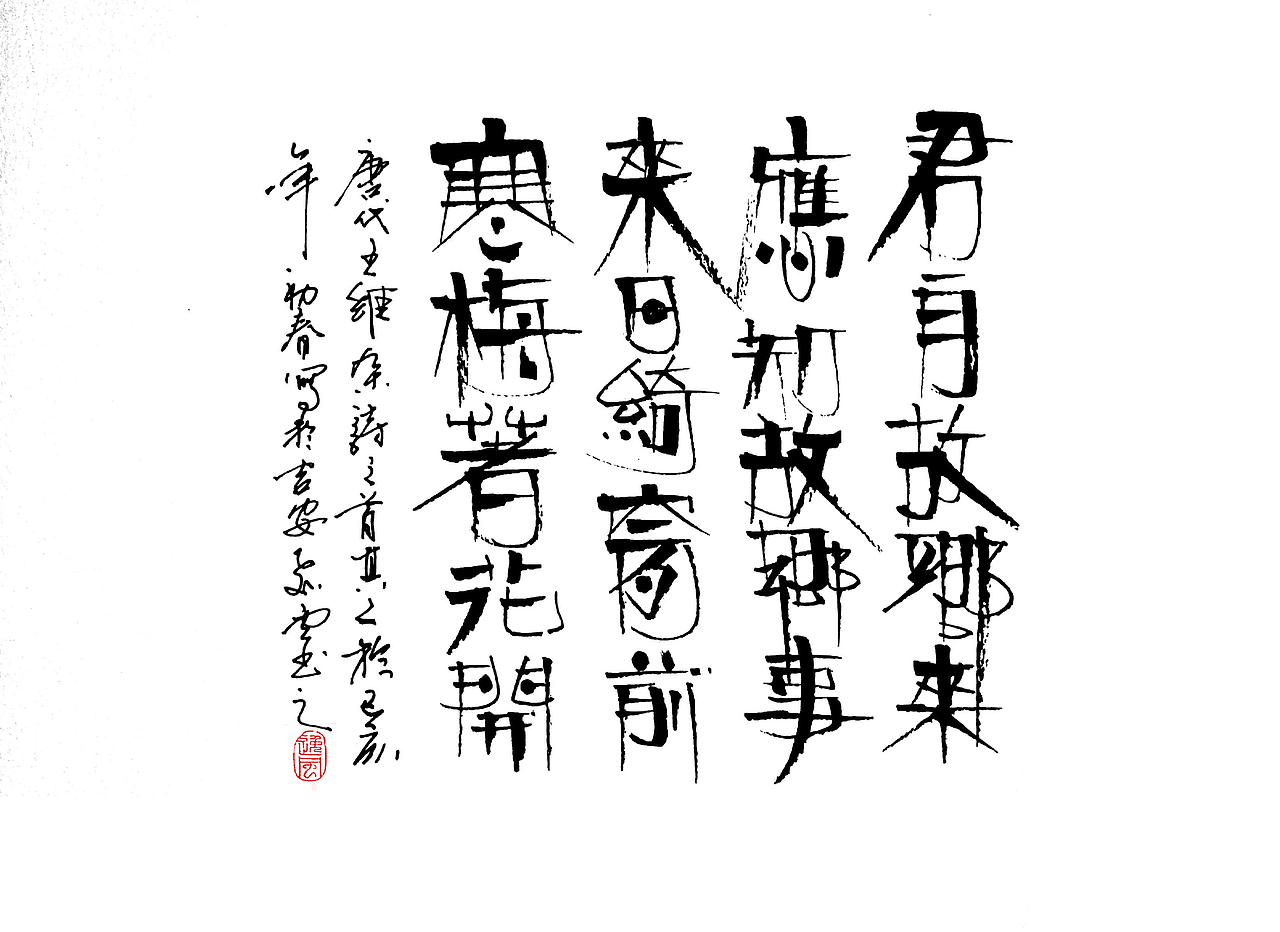 君自故鄉來
應知故鄉事
來日綺窗前
寒梅著花開
唐代王維杂詩三首其二於己亥
年初春寫於吉安雲书之